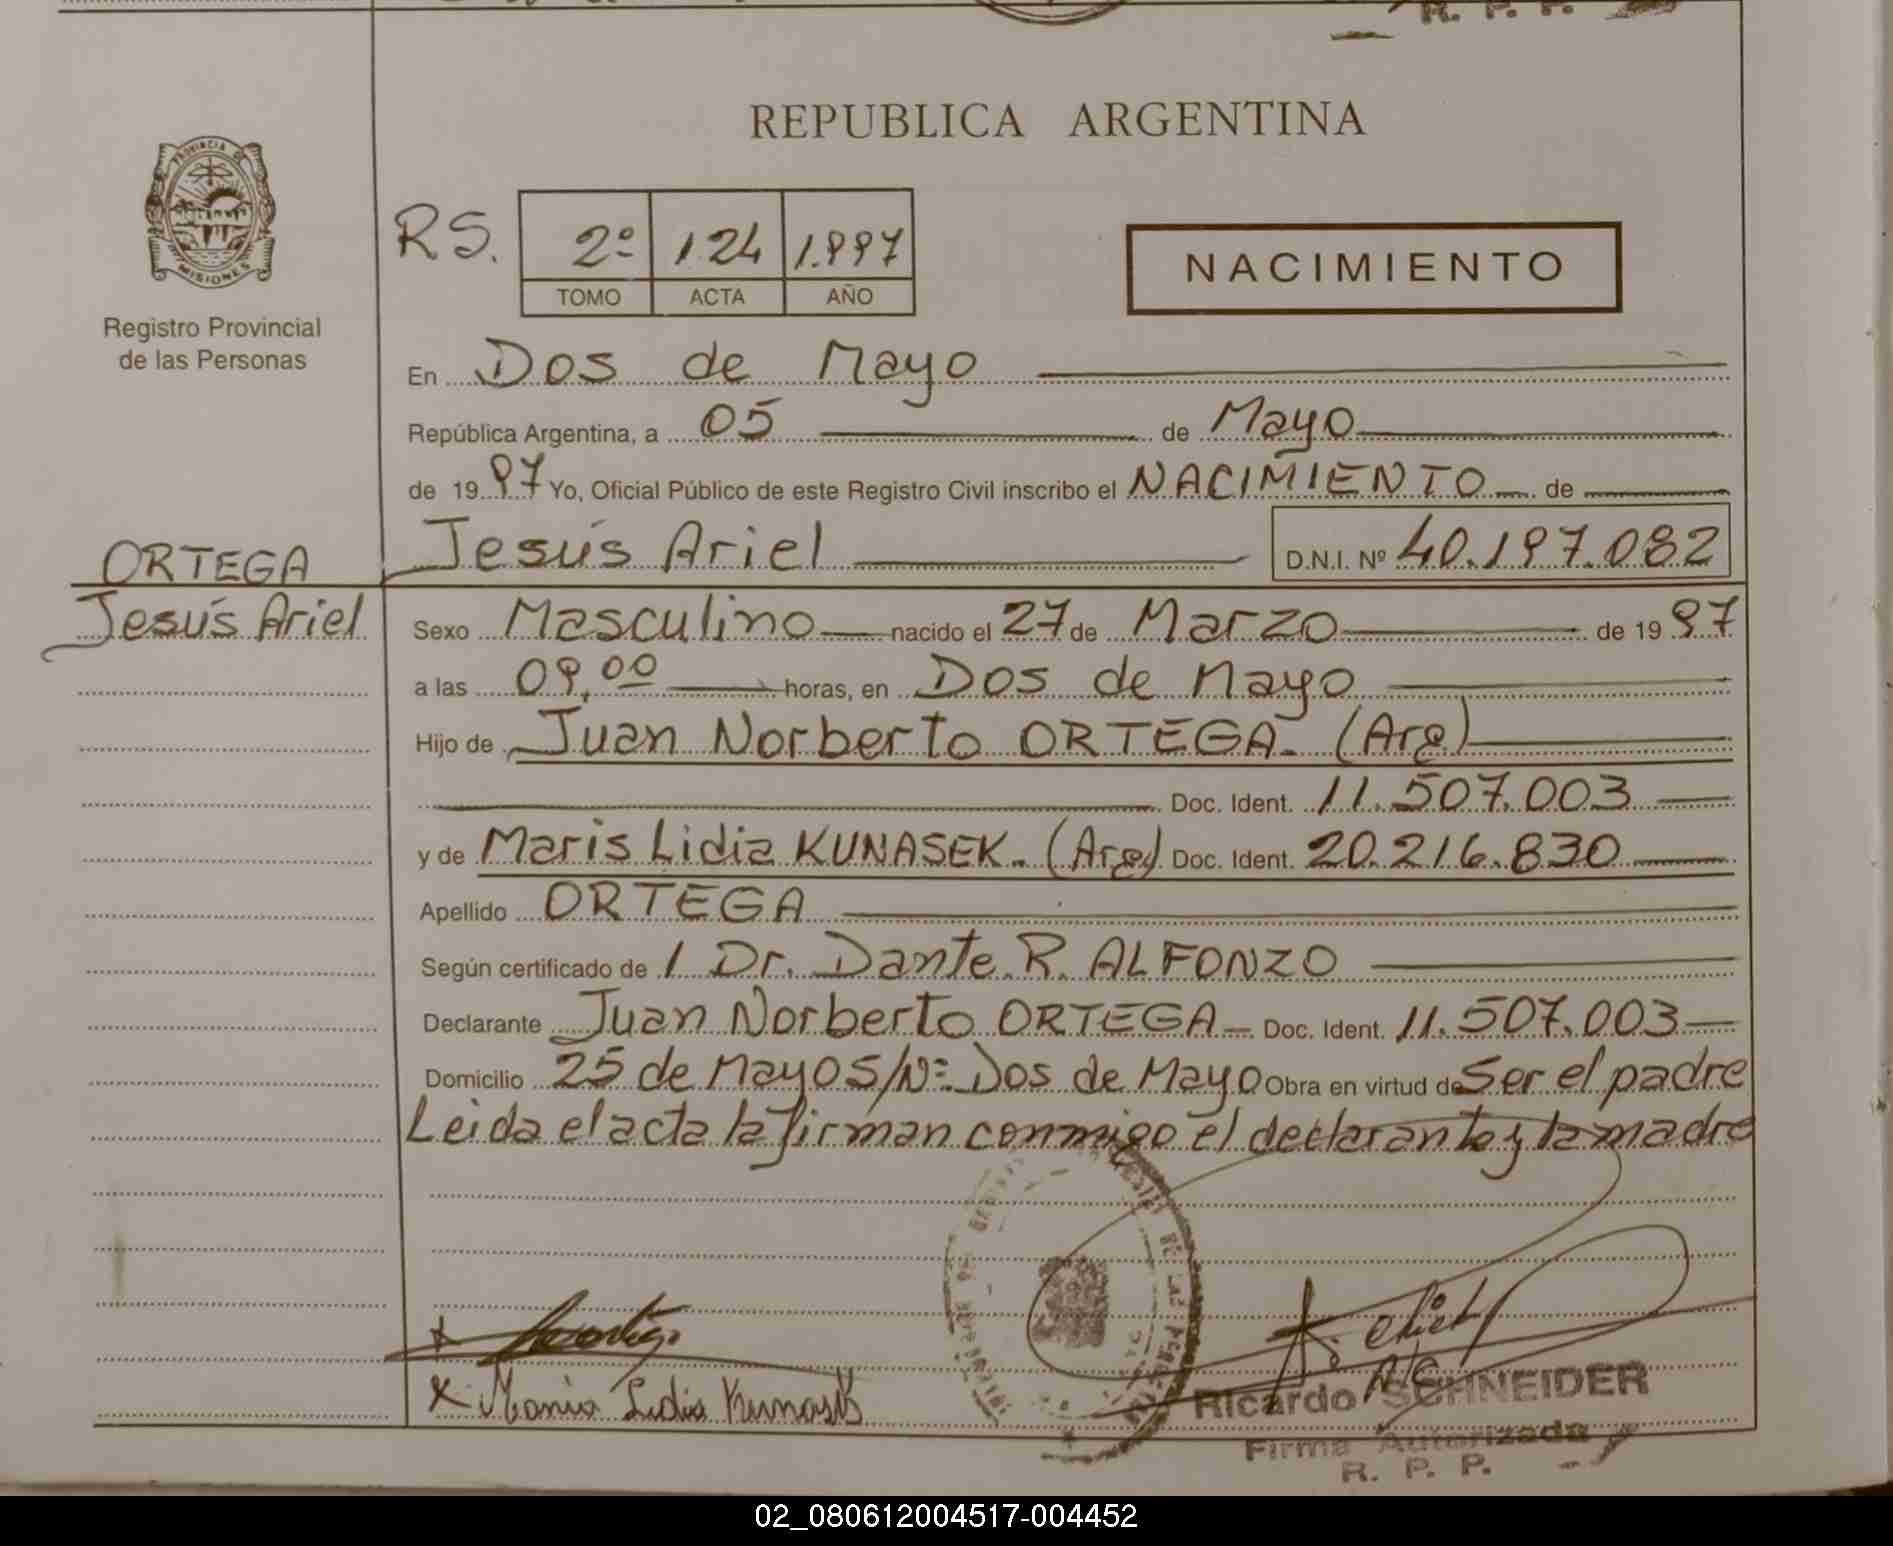 R. P. P.
PROVINCIA DE
MISIONES
Registro Provincial
de las Personas
REPUBLICA ARGENTINA
RS. 2º 124 1.997
TOMO ACTA AÑO
NACIMIENTO
En Dos de Mayo
República Argentina, a 05 de Mayo
de 1997 Yo, Oficial Público de este Registro Civil inscribo el NACIMIENTO de
ORTEGA
Jesús Ariel
Jesús Ariel D.N.I. Nº 40.197.082
Sexo Masculino nacido el 27 de Marzo de 1997
a las 09,00 horas, en Dos de Mayo
Hijo de Juan Norberto ORTEGA- (Arg)
Doc. Ident. 11.507.003
y de Maris Lidia KUNASEK. (Arg) Doc. Ident. 20.216.830
Apellido ORTEGA
Según certificado de / Dr. Dante R. ALFONZO
Declarante Juan Norberto ORTEGA- Doc. Ident. 11.507.003
Domicilio 25 de Mayo S/Nº Dos de Mayo Obra en virtud de Ser el padre
Leida el acta la firman conmigo el declarante y la madre
x
x Lidia
Ricardo SCHNEIDER
Firma Autorizada
R. P. P.
02_080612004517-004452